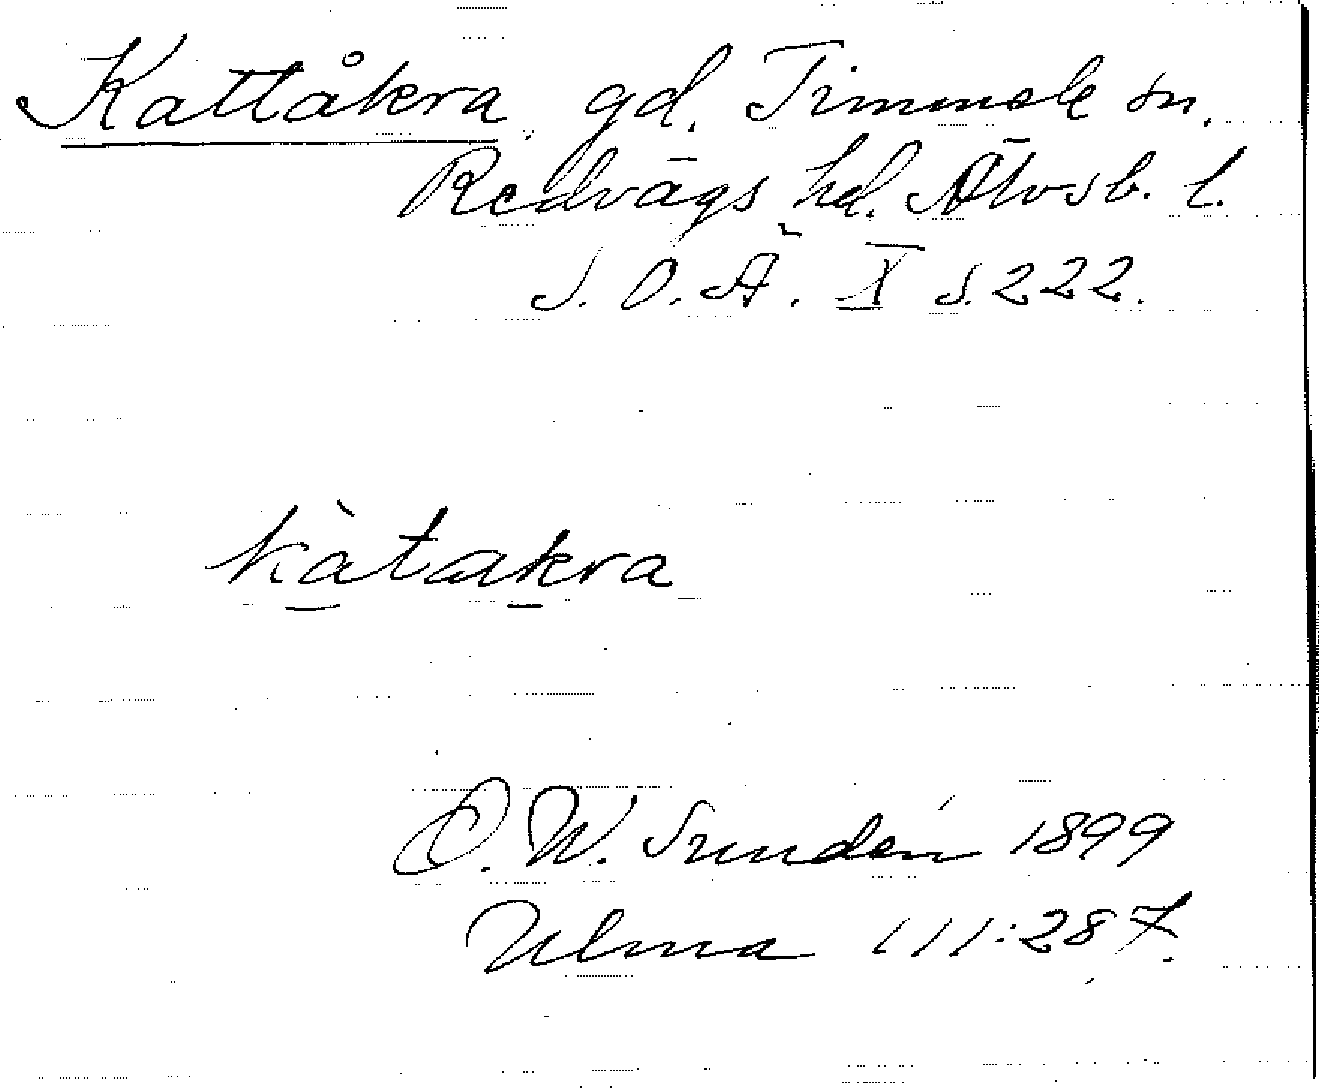 Kattåkra gd. Timmele sn.
Redvägs hd. Älvsb. l.
S. O. Ä. X s. 222.
kàtakra
O. W. Sundén 1899
Ulma 111:287.